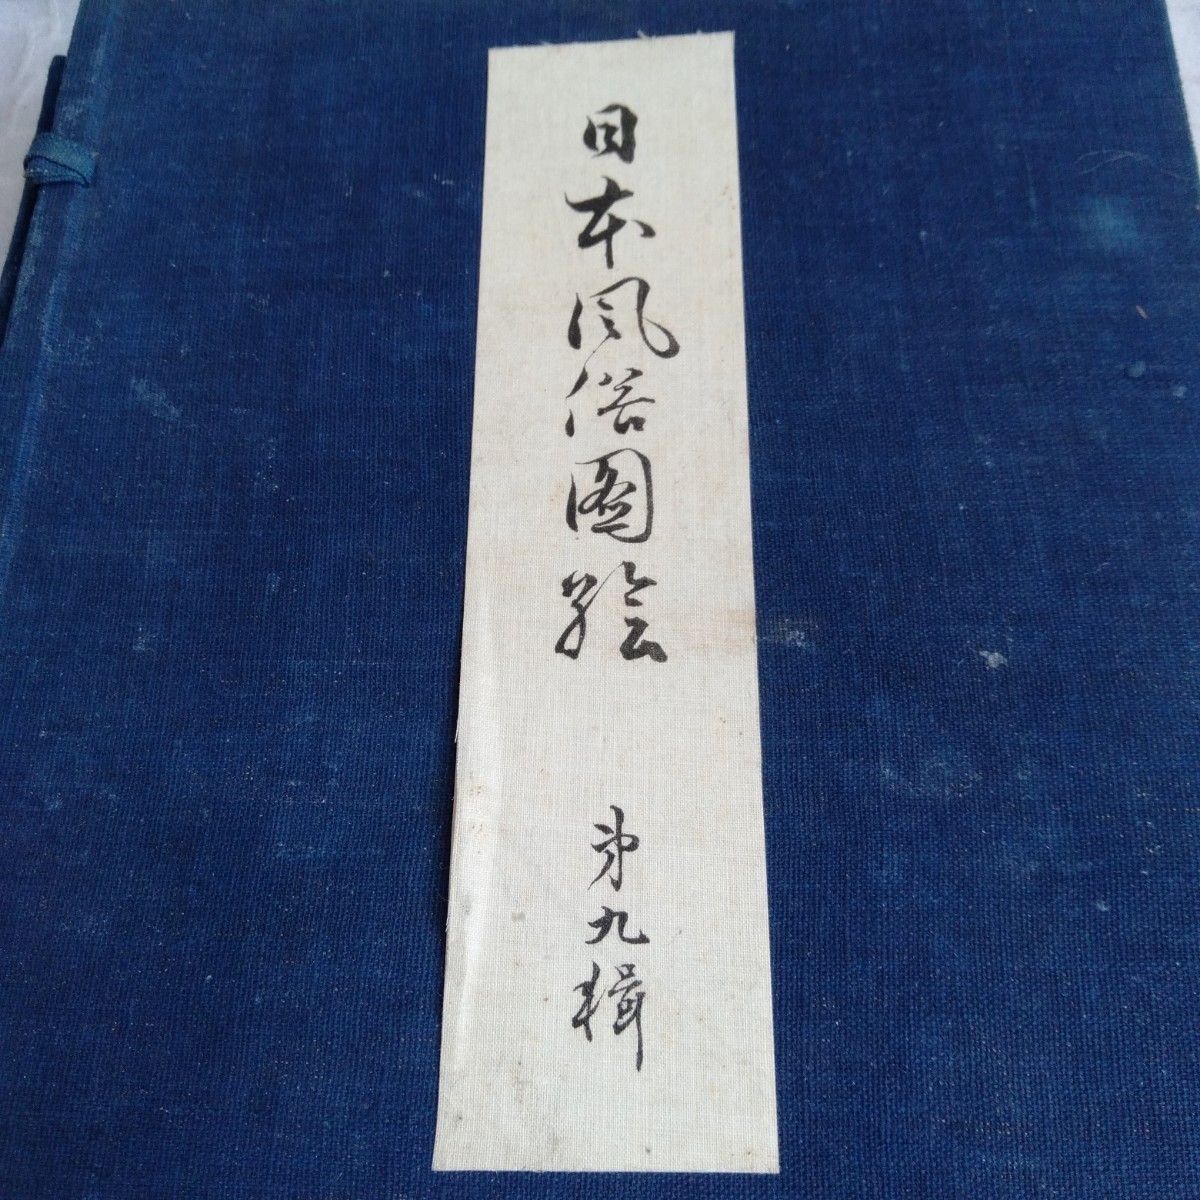 日本風俗圖繪
第九輯